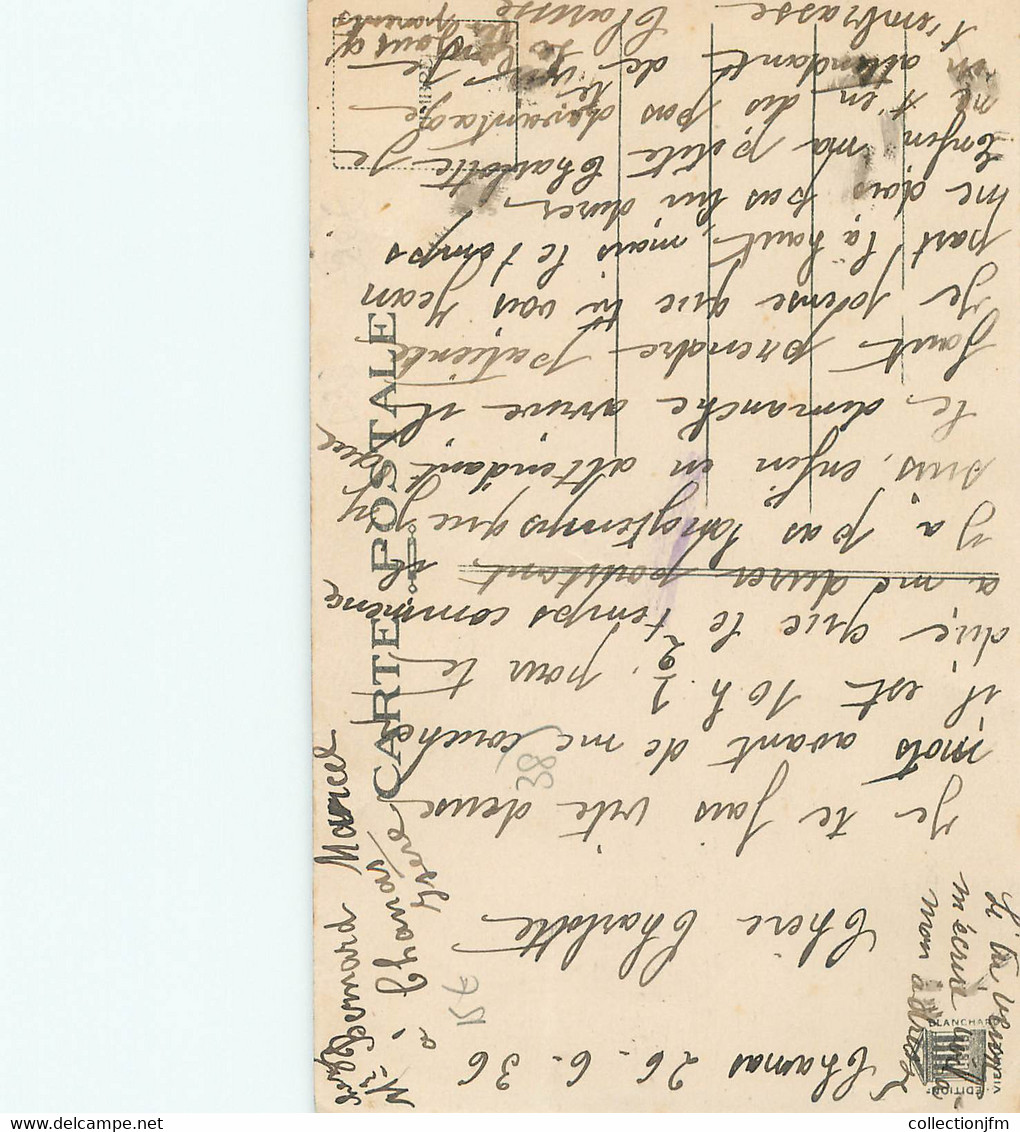 CARTE POSTALE
Chamas 26-6-36
Chère Charlotte
Je te fais vite deux
mots avant de me couche
il est 10 h ½, pour te
dire que le temps commence
a me durer pourtant il
y a pas longtemps que j'y
suis, enfin en attendant que
le dimanche arrive il
faut prendre patience
Je pense que tu vois Jean
part la haut, mais le temps
me dois pas lui durer.
Enfin ma petite Charlotte Je
ne t'en dis pas davantage
en attendant de te voir Je
t'embrasse
parents
Si tu veux
m'écrire
mon adresse
chez Mr Bernard Marcel
a Chamas
Isère
38
15E
BLANCHARD
EDITION
collectionjfm